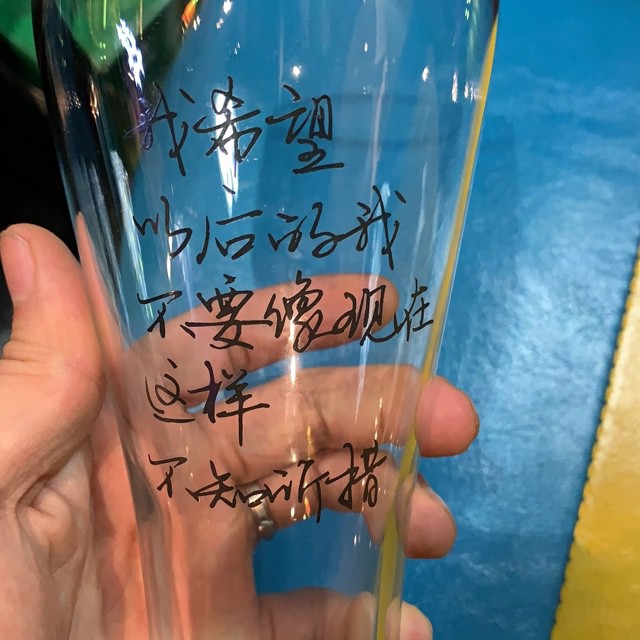 我希望
以后的我
不要像现在
这样
不知所措